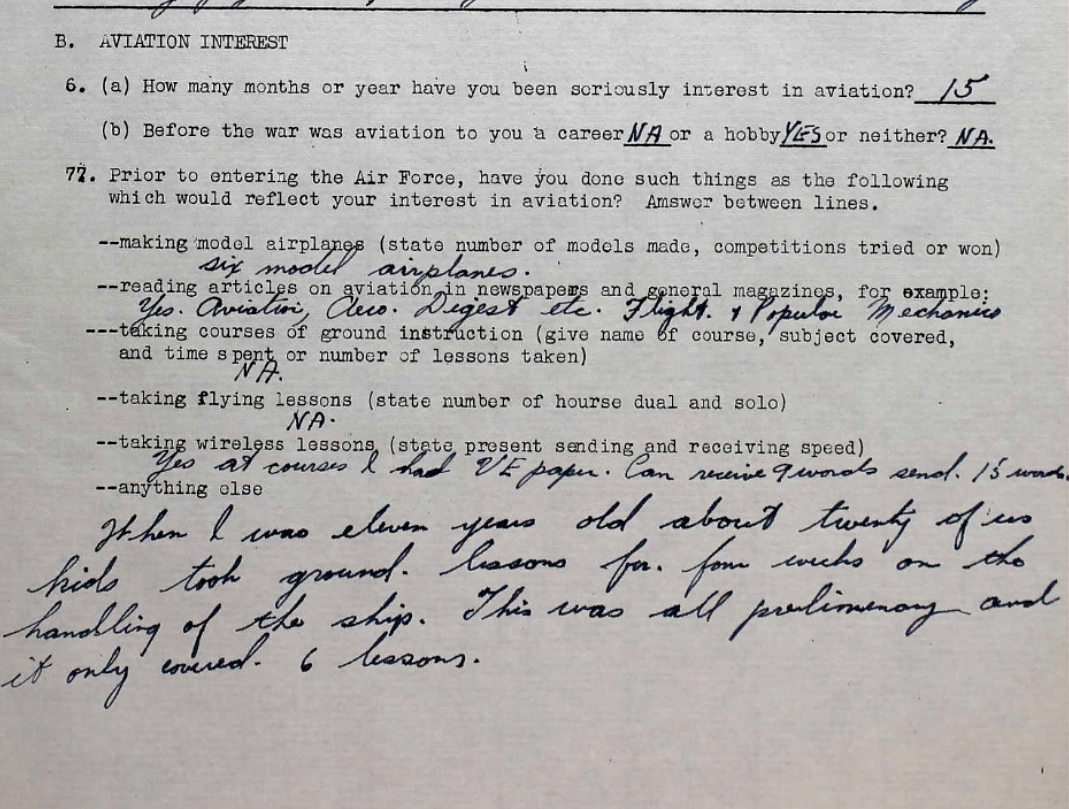 B. AVIATION INTEREST
6. (a) How many months or year have you been seriously interest in aviation? 15
(b) Before the war was aviation to you a career NA or a hobby YES or neither? NA.
77. Prior to entering the Air Force, have you done such things as the following
which would reflect your interest in aviation? Amswer between lines.
--making model airplanes (state number of models made, competitions tried or won)
six model airplanes.
--reading articles on aviation in newspapers and general magazines, for example:
Yes. Aviation, Aero. Digest etc. Flight. & Popular Mechanics
---taking courses of ground instruction (give name of course, subject covered,
and time spent or number of lessons taken)
NA.
--taking flying lessons (state number of hourse dual and solo)
NA.
--taking wireless lessons (state present sending and receiving speed)
Yes at courses I had VE paper. Can receive 9 words send. 15 words.
--anything else
When I was eleven years old about twenty of us
kids took ground. lessons for. four weeks on the
handling of the ship. This was all prelimenary and
it only covered. 6 lessons.